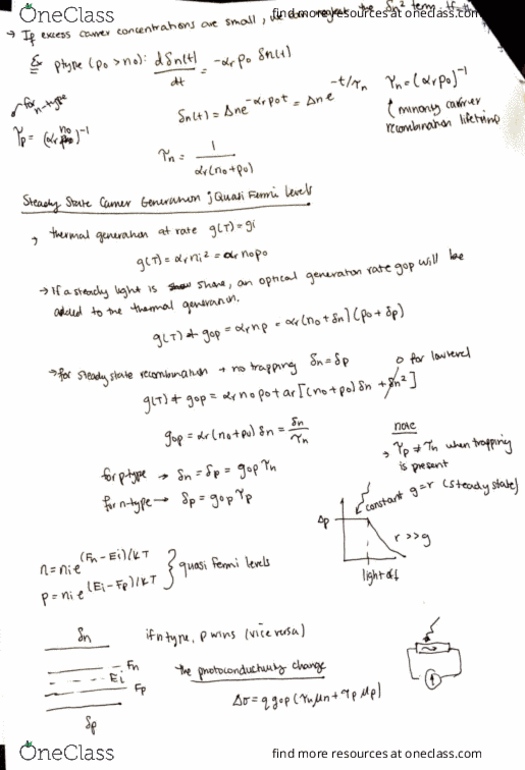 OneClass
find more resources at oneclass.com
→ If excess carrier concentrations are small, we can neglect the δn² term. If the
Ex ptype (po > no): dδn(t)/dt = -αr po δn(t)
for n-type
τp = (αr no)⁻¹
δn(t) = Δn e^(-αr po t) = Δn e^(-t/τn)
τn = (αr po)⁻¹
(minority carrier
recombination lifetime
τn = 1/(αr(no+po))
Steady State Carrier Generation ; Quasi Fermi Levels
, thermal generation at rate g(T) = gi
g(T) = αr ni² = αr nopo
→ If a steady light is shone, an optical generation rate gop will be
added to the thermal generation.
g(T) + gop = αr np = αr(no + δn)(po + δp)
→ for steady state recombination + no trapping δn = δp
0 for low level
g(T) + gop = αr nopo + αr[(no+po)δn + δn²]
gop = αr(no+po)δn = δn/τn
note
, τp ≠ τn when trapping
is present
for p-type → δn = δp = gop τn
for n-type → δp = gop τp
constant g=r (steady state)
Δp
r >> g
light off
n = ni e^((Fn - Ei)/kT)
p = ni e^((Ei - Fp)/kT)
} quasi fermi levels
δn
Fn
Ei
Fp
δp
if n type, p wins (vice versa)
the photoconductivity change
Δσ = q gop (τn μn + τp μp)
OneClass
find more resources at oneclass.com